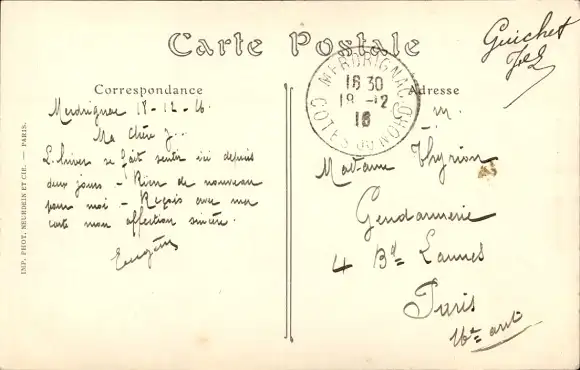 Carte Postale
Guichet
Correspondance
Adresse
MERDRIGNAC
16 30
18 -12
16
COTES DU NORD
Merdrignac 18-12-16
Ma Chère J...
L'hiver se fait sentir ici depuis
deux jours - Rien de nouveau
pour moi - Reçois avec ma
carte mon affection sincère.
Eugène
m.
Madame Thyrion
Gendarmerie
4 Bd Lannes
Paris
16e arrt
IMP. PHOT. NEURDEIN ET CIE. — PARIS.